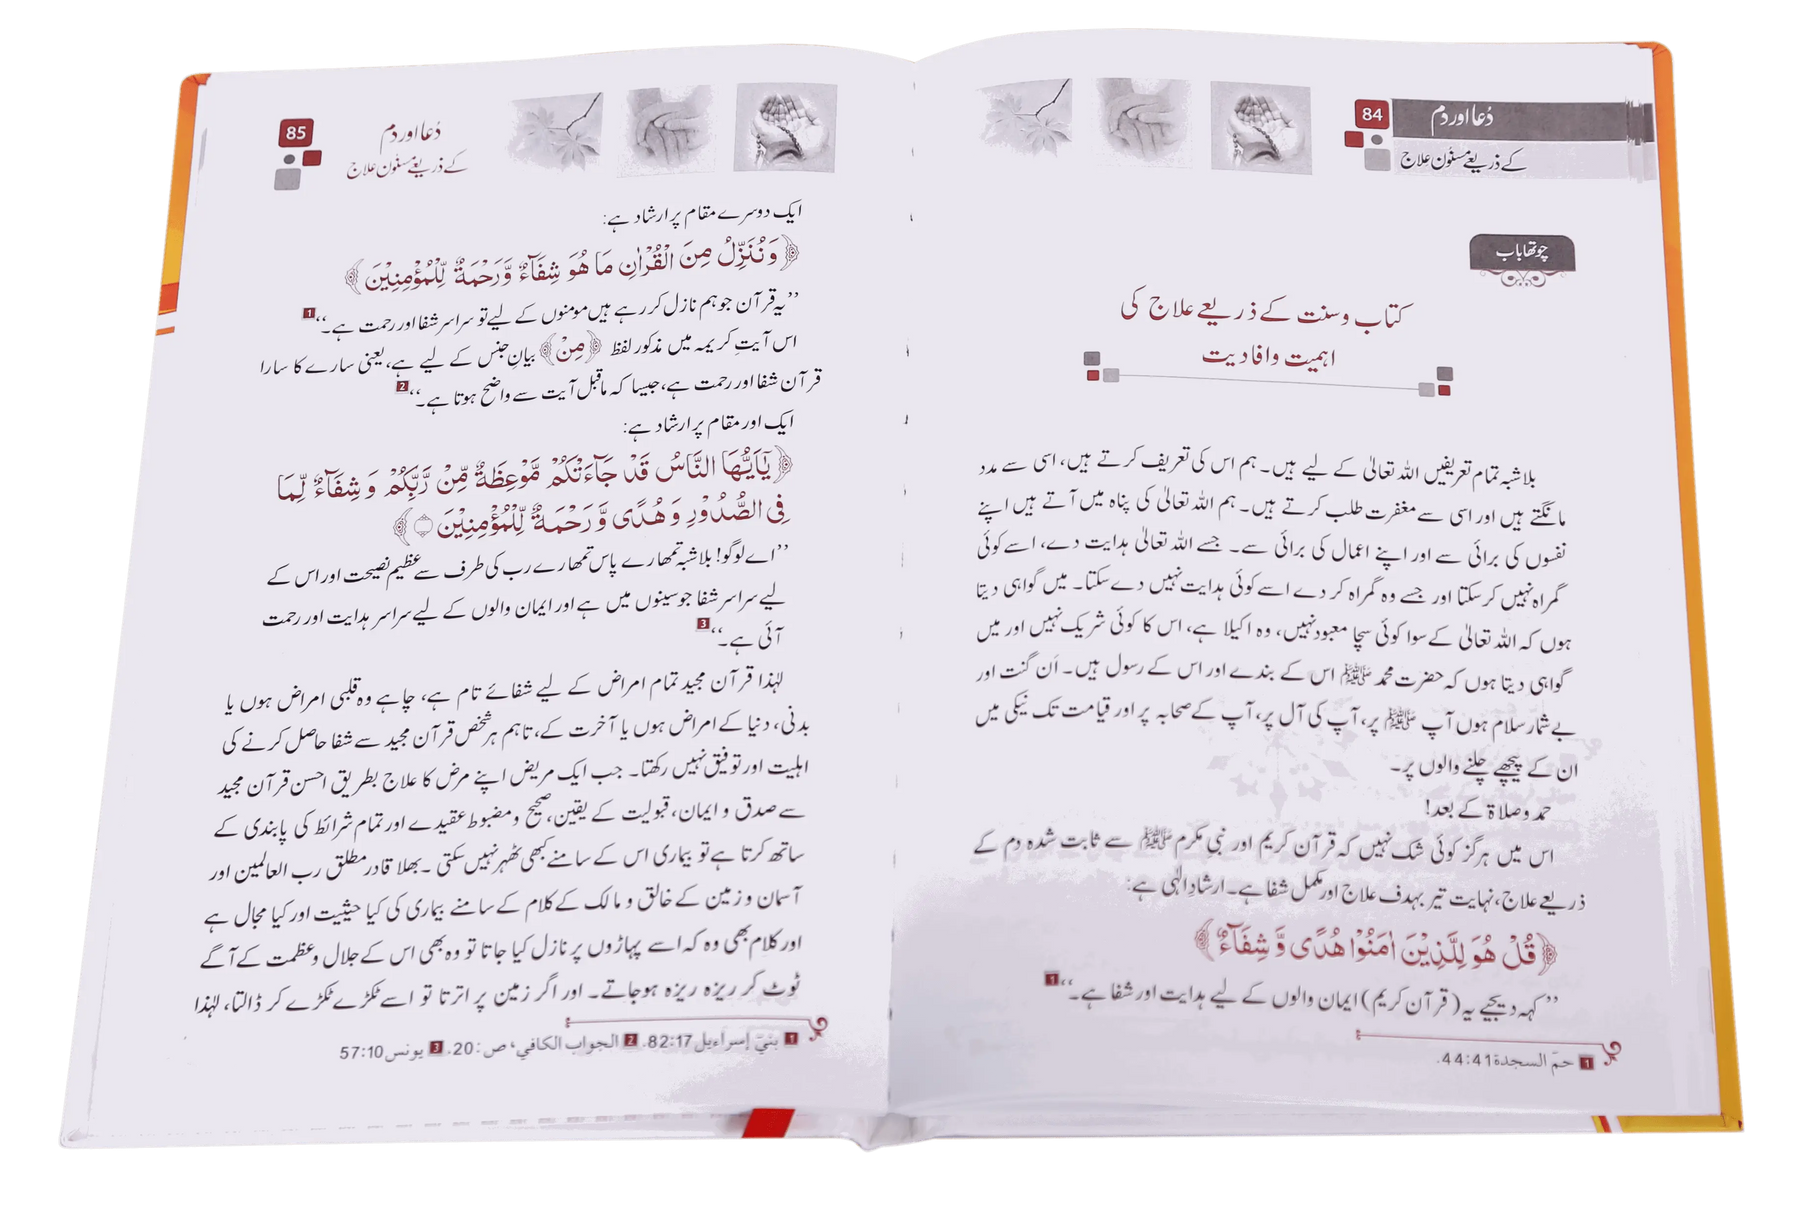 84
دُعا اور دم
کے ذریعے مسنون علاج
چوتھا باب
کتاب وسنت کے ذریعے علاج کی
اہمیت وافادیت
بلاشبہ تمام تعریفیں اللہ تعالیٰ کے لیے ہیں۔ ہم اس کی تعریف کرتے ہیں، اسی سے مدد
مانگتے ہیں اور اسی سے مغفرت طلب کرتے ہیں۔ ہم اللہ تعالیٰ کی پناہ میں آتے ہیں اپنے
نفسوں کی برائی سے اور اپنے اعمال کی برائی سے۔ جسے اللہ تعالیٰ ہدایت دے، اسے کوئی
گمراہ نہیں کرسکتا اور جسے وہ گمراہ کر دے اسے کوئی ہدایت نہیں دے سکتا۔ میں گواہی دیتا
ہوں کہ اللہ تعالیٰ کے سوا کوئی سچا معبود نہیں، وہ اکیلا ہے، اس کا کوئی شریک نہیں اور میں
گواہی دیتا ہوں کہ حضرت محمد ﷺ اس کے بندے اور اس کے رسول ہیں۔ اَن گنت اور
بے شمار سلام ہوں آپ ﷺ پر، آپ کی آل پر، آپ کے صحابہ پر اور قیامت تک نیکی میں
ان کے پیچھے چلنے والوں پر۔
حمد وصلاۃ کے بعد!
اس میں ہرگز کوئی شک نہیں کہ قرآن کریم اور نبیِ مکرم ﷺ سے ثابت شدہ دم کے
ذریعے علاج، نہایت تیر بہدف علاج اور مکمل شفا ہے۔ ارشادِ الٰہی ہے:
﴿قُلْ هُوَ لِلَّذِيْنَ اٰمَنُوْا هُدًى وَّ شِفَآءٌ﴾
’’کہہ دیجیے یہ (قرآن کریم) ایمان والوں کے لیے ہدایت اور شفا ہے۔‘‘ 1
1 حمۤ السجدة 44:41.
85
دُعا اور دم
کے ذریعے مسنون علاج
ایک دوسرے مقام پر ارشاد ہے:
﴿وَنُنَزِّلُ مِنَ الْقُرْاٰنِ مَا هُوَ شِفَآءٌ وَّرَحْمَةٌ لِّلْمُؤْمِنِيْنَ﴾
’’یہ قرآن جو ہم نازل کر رہے ہیں مومنوں کے لیے تو سراسر شفا اور رحمت ہے۔‘‘ 1
اس آیتِ کریمہ میں مذکور لفظ ﴿مِنْ﴾ بیانِ جنس کے لیے ہے، یعنی سارے کا سارا
قرآن شفا اور رحمت ہے، جیسا کہ ماقبل آیت سے واضح ہوتا ہے۔‘‘ 2
ایک اور مقام پر ارشاد ہے:
﴿يٰۤاَيُّهَا النَّاسُ قَدْ جَآءَتْكُمْ مَّوْعِظَةٌ مِّنْ رَّبِّكُمْ وَ شِفَآءٌ لِّمَا
فِي الصُّدُوْرِ وَ هُدًى وَّ رَحْمَةٌ لِّلْمُؤْمِنِيْنَ ۝﴾
’’اے لوگو! بلاشبہ تمھارے پاس تمھارے رب کی طرف سے عظیم نصیحت اور اس کے
لیے سراسر شفا جو سینوں میں ہے اور ایمان والوں کے لیے سراسر ہدایت اور رحمت
آئی ہے۔‘‘ 3
لہٰذا قرآن مجید تمام امراض کے لیے شفائے تام ہے، چاہے وہ قلبی امراض ہوں یا
بدنی، دنیا کے امراض ہوں یا آخرت کے، تاہم ہر شخص قرآن مجید سے شفا حاصل کرنے کی
اہلیت اور توفیق نہیں رکھتا۔ جب ایک مریض اپنے مرض کا علاج بطریقِ احسن قرآن مجید
سے صدق و ایمان، قبولیت کے یقین، صحیح و مضبوط عقیدے اور تمام شرائط کی پابندی کے
ساتھ کرتا ہے تو بیماری اس کے سامنے کبھی ٹھہر نہیں سکتی۔ بھلا قادر مطلق رب العالمین اور
آسمان و زمین کے خالق و مالک کے کلام کے سامنے بیماری کی کیا حیثیت اور کیا مجال ہے
اور کلام بھی وہ کہ اسے پہاڑوں پر نازل کیا جاتا تو وہ بھی اس کے جلال و عظمت کے آگے
ٹوٹ کر ریزہ ریزہ ہوجاتے۔ اور اگر زمین پر اترتا تو اسے ٹکڑے ٹکڑے کر ڈالتا، لہٰذا
1 بنيۤ إسراءيل 82:17. 2 الجواب الكافي، ص:20. 3 يونس 57:10